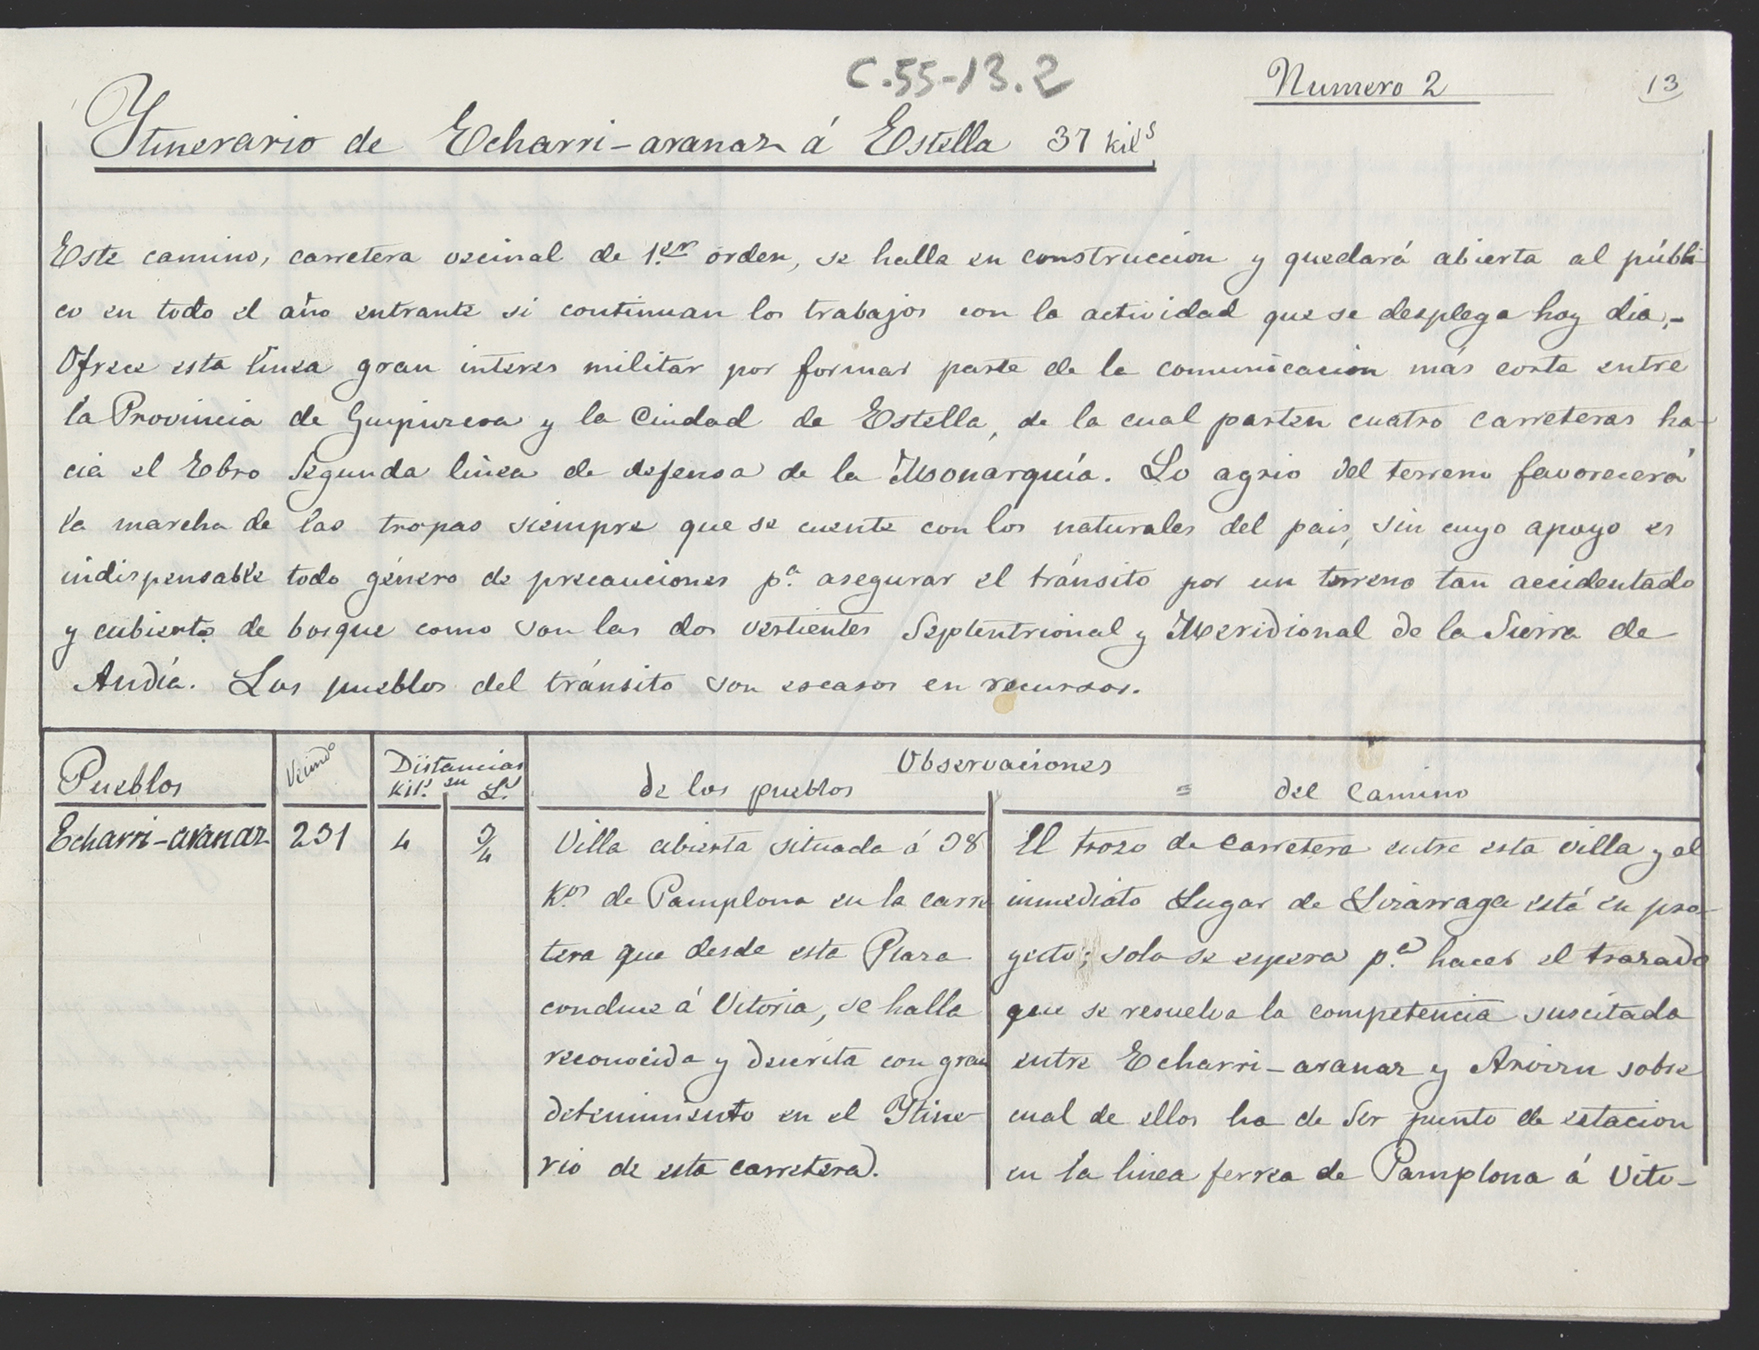 C.55-13.2
Numero 2
13
Ytinerario de Echarri-aranaz á Estella 37 kilˢ
Este camino, carretera vecinal de 1.er orden, se halla en construccion y quedará abierta al públi-
co en todo el año entrante si continuan los trabajos con la actividad que se desplega hoy dia,-
Ofrece esta linea gran interes militar por formar parte de la comunicacion más corta entre
la Provincia de Guipuzcoa y la Ciudad de Estella, de la cual parten cuatro carreteras ha-
cia el Ebro Segunda linea de defensa de la Monarquía. Lo agrio del terreno favorecerá
la marcha de las tropas siempre que se cuente con los naturales del pais, sin cuyo apoyo es
indispensable todo género de precauciones p.ª asegurar el tránsito por un terreno tan accidentado
y cubierto de bosque como son las dos vertientes Septentrional y Meridional de la Sierra de
Andía. Los pueblos del tránsito son escasos en recursos.
Pueblos
Vecind.º
Distancias
Kil.ˢ en L.ˢ
Observaciones
de los pueblos = del Camino
Echarri-aranaz 231 4 3/4
Villa abierta situada á 38
K.os de Pamplona en la carre
tera que desde esta Plaza
conduce á Vitoria, se halla
reconocida y descrita con gran
detenimiento en el Ytine-
rio de esta carretera.
El trozo de carretera entre esta villa y el
inmediato Lugar de Lizarraga está en pro-
yecto; solo se espera p.ª hacer el trazado
que se resuelva la competencia suscitada
entre Echarri-aranaz y Arvizu sobre
cual de ellos ha de Ser punto de estacion
en la linea ferrea de Pamplona á Vito-